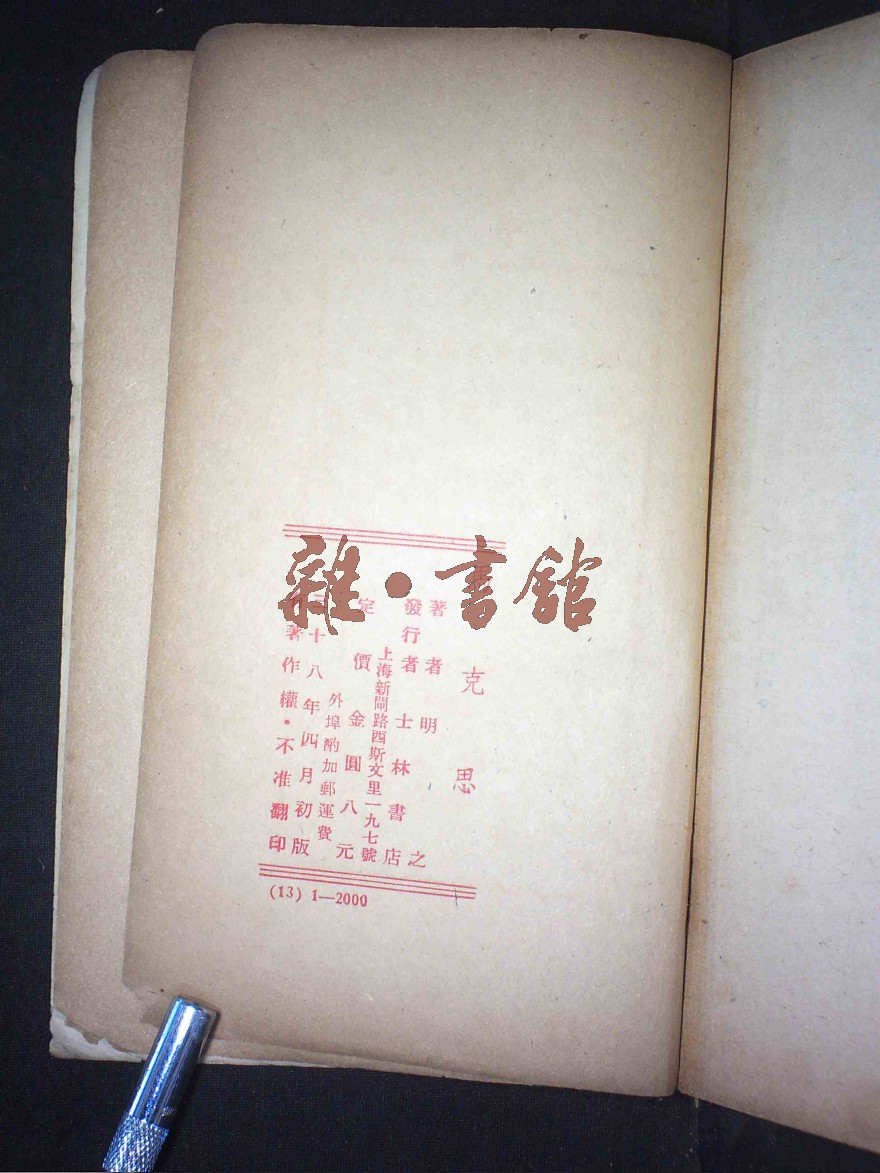 雜·書館
克思
著者 明之
發行者 士林書店
上海新閘路西斯文里一九七號
定價 金圓八元
外埠酌加郵運費
十八年四月初版
著作權·不准翻印
(13) 1—2000